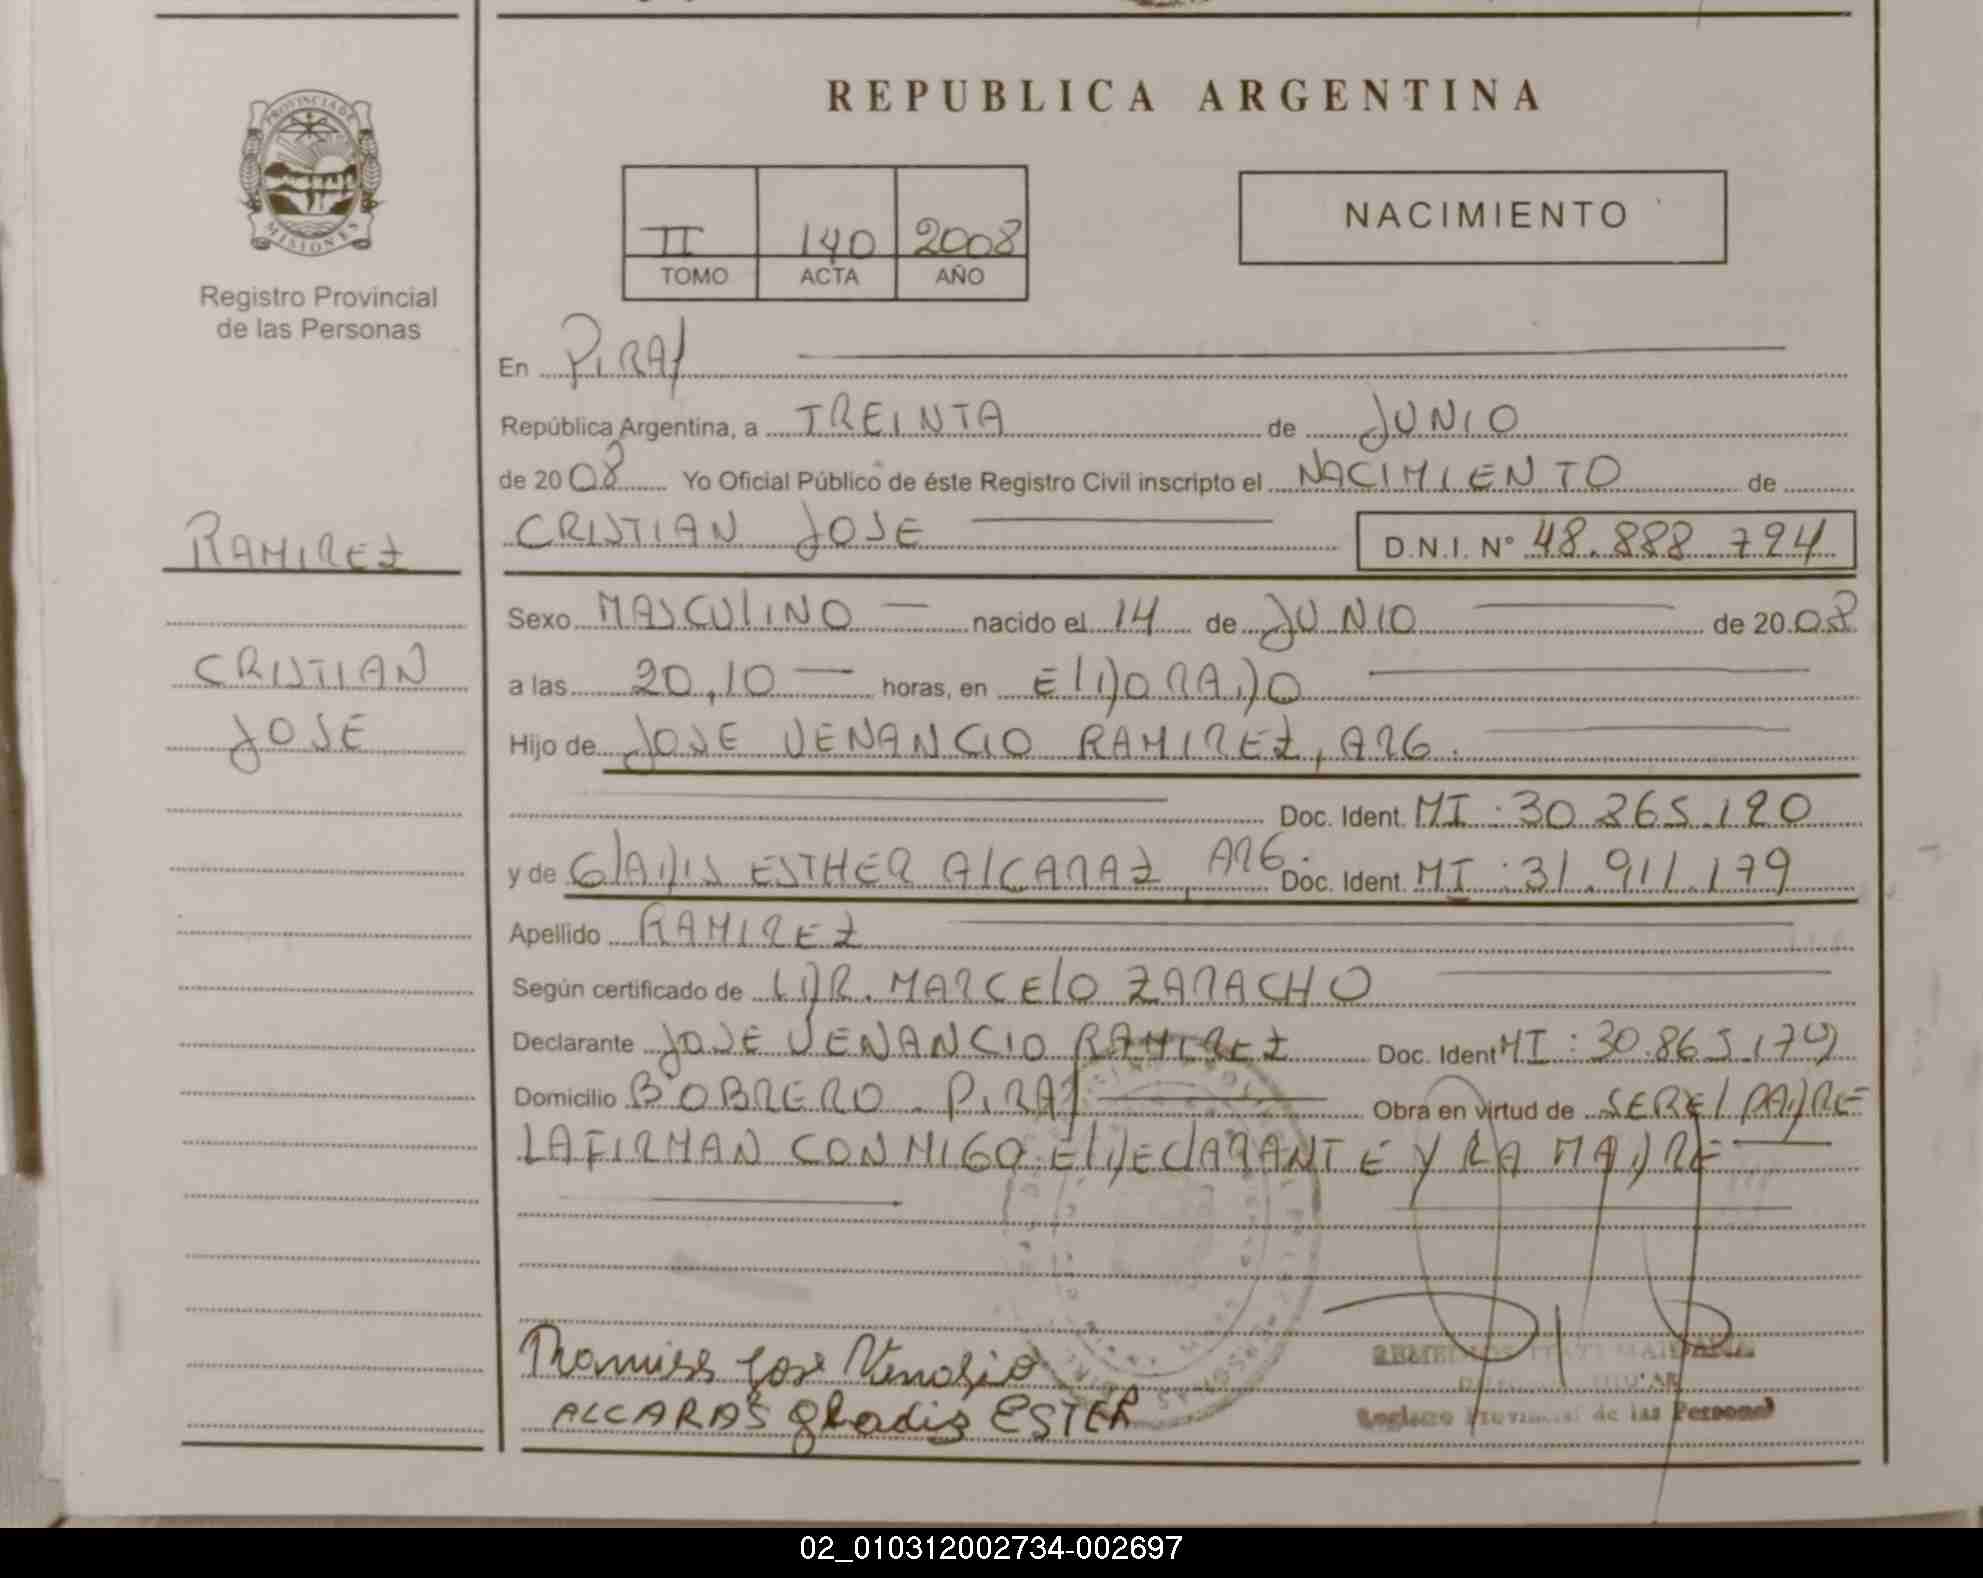 REPUBLICA ARGENTINA
PROVINCIA DE
MISIONES
Registro Provincial
de las Personas
II 140 2008
TOMO ACTA AÑO
NACIMIENTO
En PIRAY
República Argentina, a TREINTA de JUNIO
de 2008 Yo Oficial Público de éste Registro Civil inscripto el NACIMIENTO de
CRISTIAN JOSE D.N.I. Nº 48.888.794
RAMIREZ
CRISTIAN
JOSE
Sexo MASCULINO nacido el 14 de JUNIO de 2008
a las 20,10 horas, en ElDORADO
Hijo de JOSE VENANCIO RAMIREZ, ARG.
Doc. Ident. MI: 30.865.120
y de GlADIS ESTHER AlCARAZ, ARG. Doc. Ident. MI: 31.911.179
Apellido RAMIREZ
Según certificado de DR. MARCElO ZARACHO
Declarante JOSE VENANCIO RAMIREZ Doc. Ident MI: 30.865.170
Domicilio Bº OBRERO - PIRAY Obra en virtud de SER El PADRE
LA FIRMAN CONMIGO El DEClARANTE Y LA MADRE
Ramires Jose Venasio
ALCARAS gladis ESTER
Registro Provincial de las Personas
02_010312002734-002697